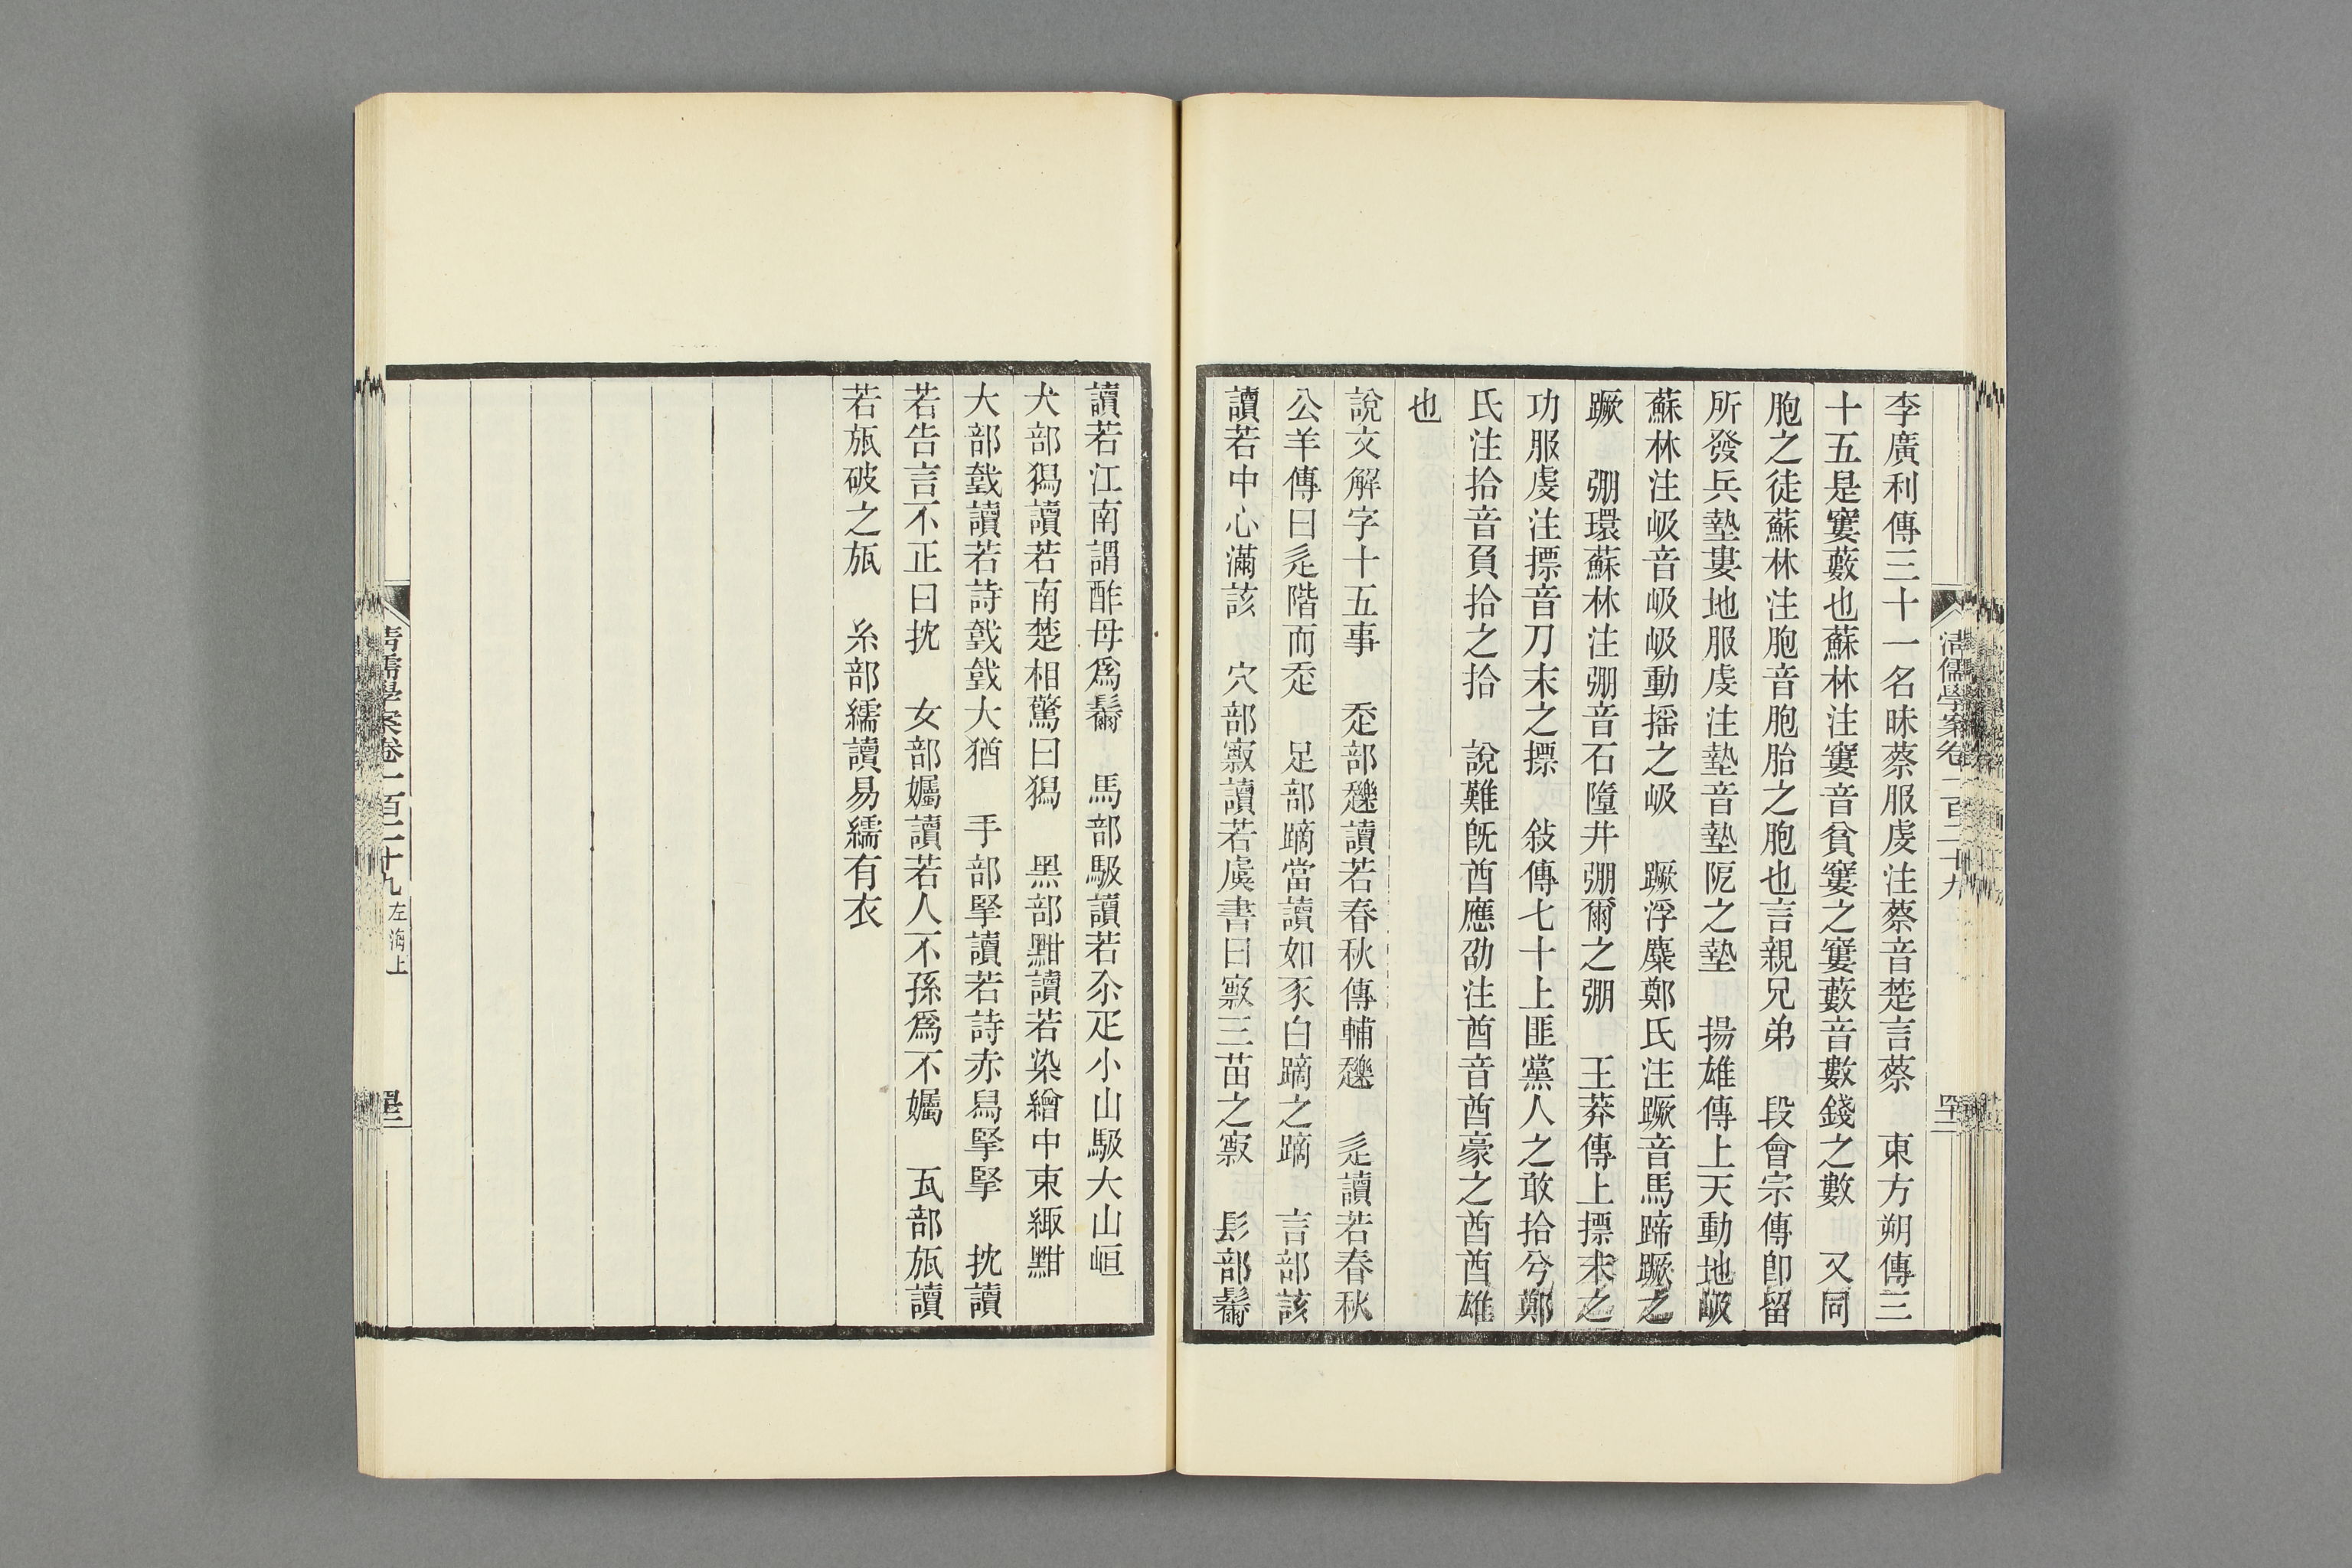 李廣利傳三十一名昧蔡服虔注蔡音楚言蔡　東方朔傳三
十五是寠藪也蘇林注寠音貧寠之寠藪音數錢之數　又同
胞之徒蘇林注胞音胞胎之胞也言親兄弟　段會宗傳卽留
所發兵墊婁地服虔注墊音墊阸之墊　揚雄傳上天動地岋
蘇林注岋音岋岋動搖之岋　蹶浮麋鄭氏注蹶音馬蹄蹶之
蹶　弸環蘇林注弸音石墮井弸爾之弸　王莽傳上摽末之
功服虔注摽音刀末之摽　敍傳七十上匪黨人之敢拾兮鄭
氏注拾音負拾之拾　說難旣酋應劭注酋音酋豪之酋酋雄
也
說文解字十五事　辵部䟐讀若春秋傳輔䟐　辵讀若春秋
公羊傳曰辵階而辵　足部蹢當讀如豕白蹢之蹢　言部該
讀若中心滿該　穴部㝮讀若虞書曰㝮三苗之㝮　髟部鬗
讀若江南謂酢母爲鬗　馬部馺讀若尒疋小山馺大山峘
犬部獡讀若南楚相驚曰獡　黑部黚讀若染繒中束緅黚
大部𢧜讀若詩𢧜𢧜大猶　手部掔讀若詩赤舄掔掔　抌讀
若告言不正曰抌　女部孎讀若人不孫爲不孎　瓦部㼚讀
若㼚破之㼚　糸部繻讀易繻有衣
清儒學案卷一百二十九 左海上